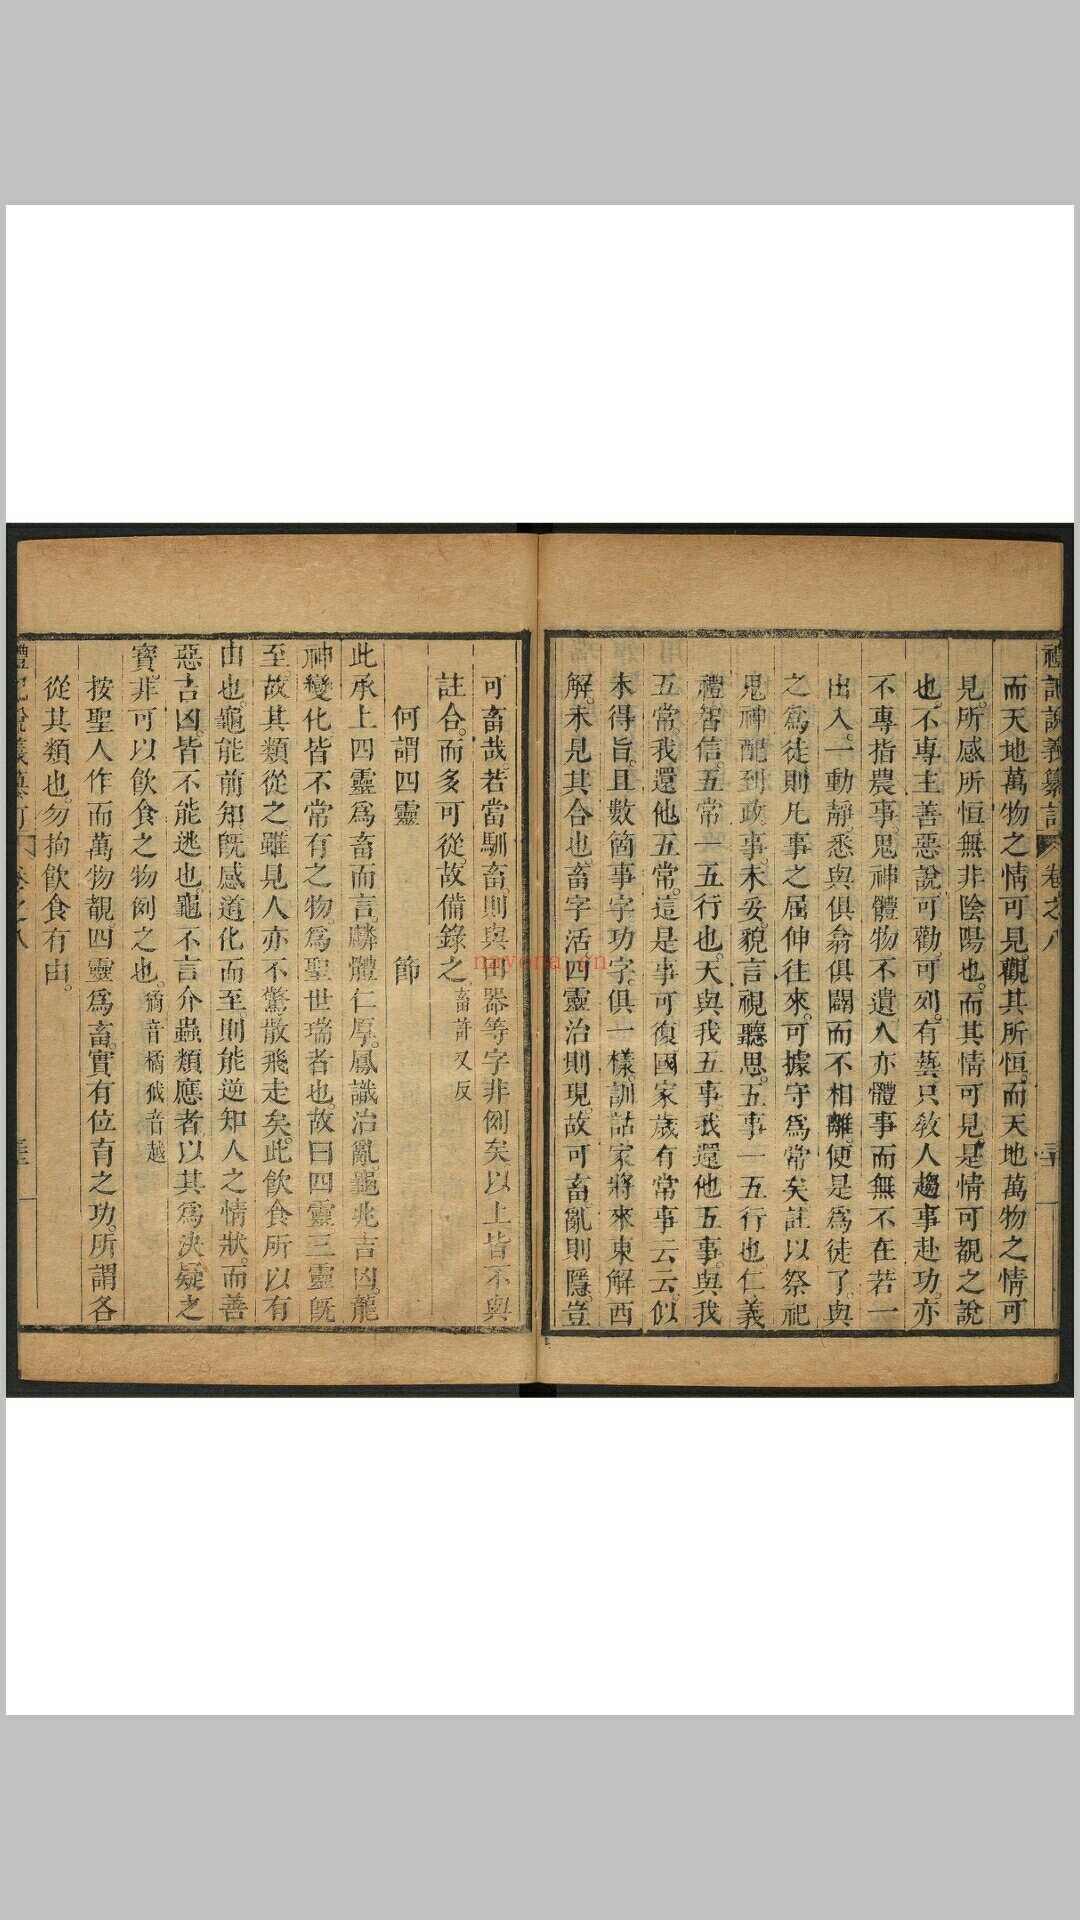 禮記說義纂訂 卷之八
而天地萬物之情可見觀其所恒而天地萬物之情可
見所感所恒無非陰陽也而其情可見是情可覩之說
也不專主善惡說可勸可列有藝只敎人趨事赴功亦
不專指農事鬼神體物不遺人亦體事而無不在若一
出入一動靜悉與俱翕俱闢而不相離便是爲徒了與
之爲徒則凡事之屈伸往來可據守爲常矣註以祭祀
鬼神配到政事未妥貌言視聽思五事一五行也仁義
禮智信五常一五行也天與我五事我還他五事與我
五常我還他五常這是事可復國家歲有常事云云似
未得旨且數箇事字功字俱一樣訓詁家將來東解西
解未見其合也畜字活四靈治則現故可畜亂則隱豈
可畜哉若當馴畜則與田器等字非例矣以上皆不與
註合而多可從故備錄之畜許又反
何謂四靈 節
此承上四靈爲畜而言麟體仁厚鳳識治亂龜兆吉凶龍
神變化皆不常有之物爲聖世瑞者也故曰四靈三靈旣
至故其類從之雖見人亦不驚散飛走矣此飲食所以有
由也龜能前知旣感道化而至則能逆知人之情狀而善
惡吉凶皆不能逃也龜不言介蟲類應者以其爲決疑之
寶非可以飮食之物例之也獝音橘狘音越
按聖人作而萬物覩四靈爲畜實有位育之功所謂各
從其類也勿拘飮食有由
nayona.cn